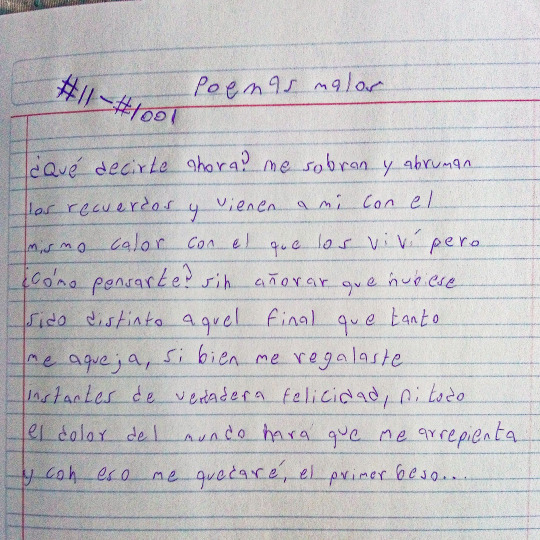 #11-#1001
Poemas malos
¿Qué decirte ahora? me sobran y abruman
los recuerdos y vienen a mi con el
mismo calor con el que los viví pero
¿Cómo pensarte? sin añorar que hubiese
sido distinto aquel final que tanto
me aqueja, si bien me regalaste
instantes de verdadera felicidad, ni todo
el dolor del mundo hará que me arrepienta
y con eso me quedaré, el primer beso...